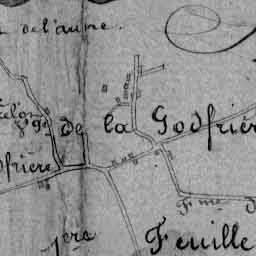 de l'aune.
S.on de la Godfriè
dfrière
F.me d
1.ere Feuille